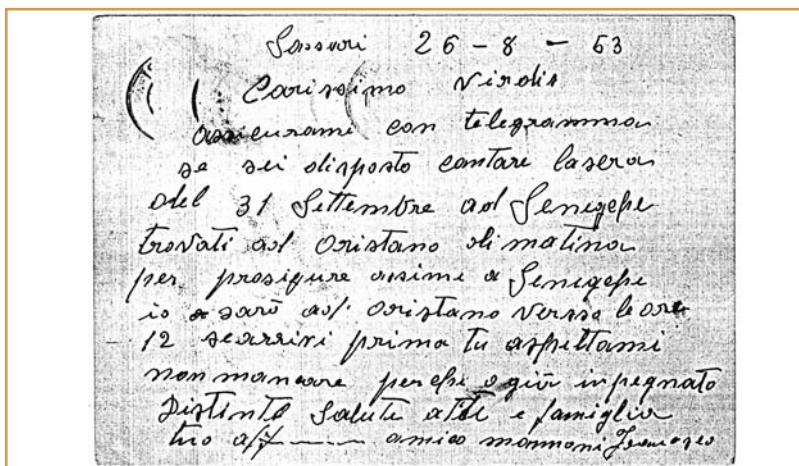 Sassari 26 - 8 - 63
Carissimo Virdis
assicurami con telegramma
se sei disposto cantare lasera
del 31 Settembre ad Seneghe
trovati ad Oristano dimatina
per prosigure assime a Seneghe
io sarò ad Oristano verso le ore
12 searrivi prima tu aspettami
non mancare perche o già inpegnato
Distinte Salute atte e famiglia
tuo aff amico mannoni Francesco